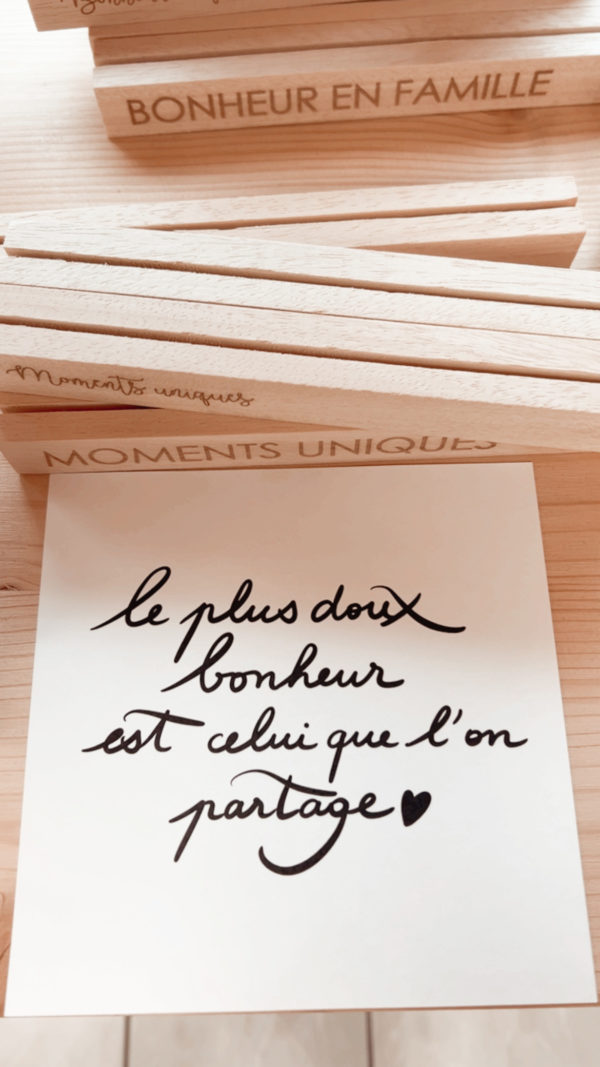 BONHEUR EN FAMILLE
Moments uniques
MOMENTS UNIQUES
le plus doux
bonheur
est celui que l'on
partage